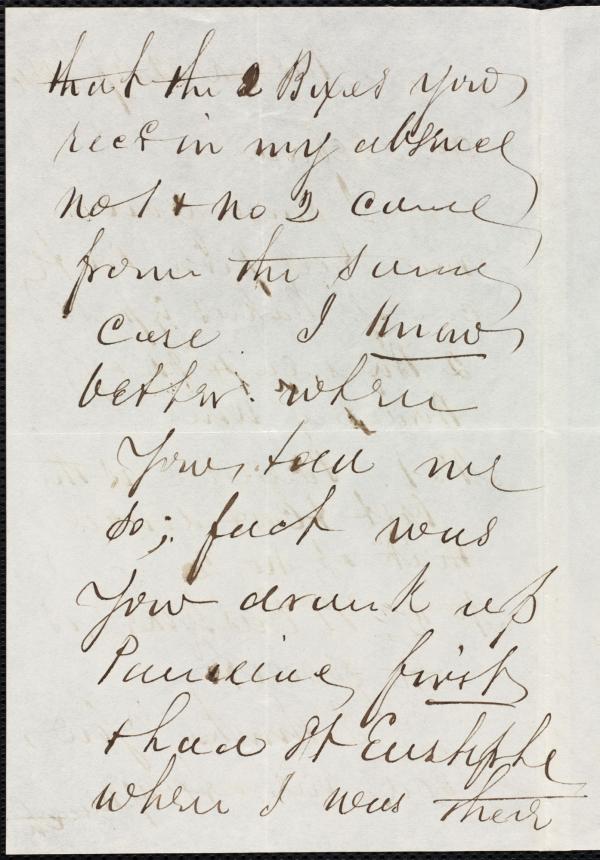 that the 2 Boxes you
recd in my absence
No 1 & No 2 came
from the same
case. I know
better. when
You told me
so; fact was
You drank up
Pauline first
& had St Eustephe
when I was there